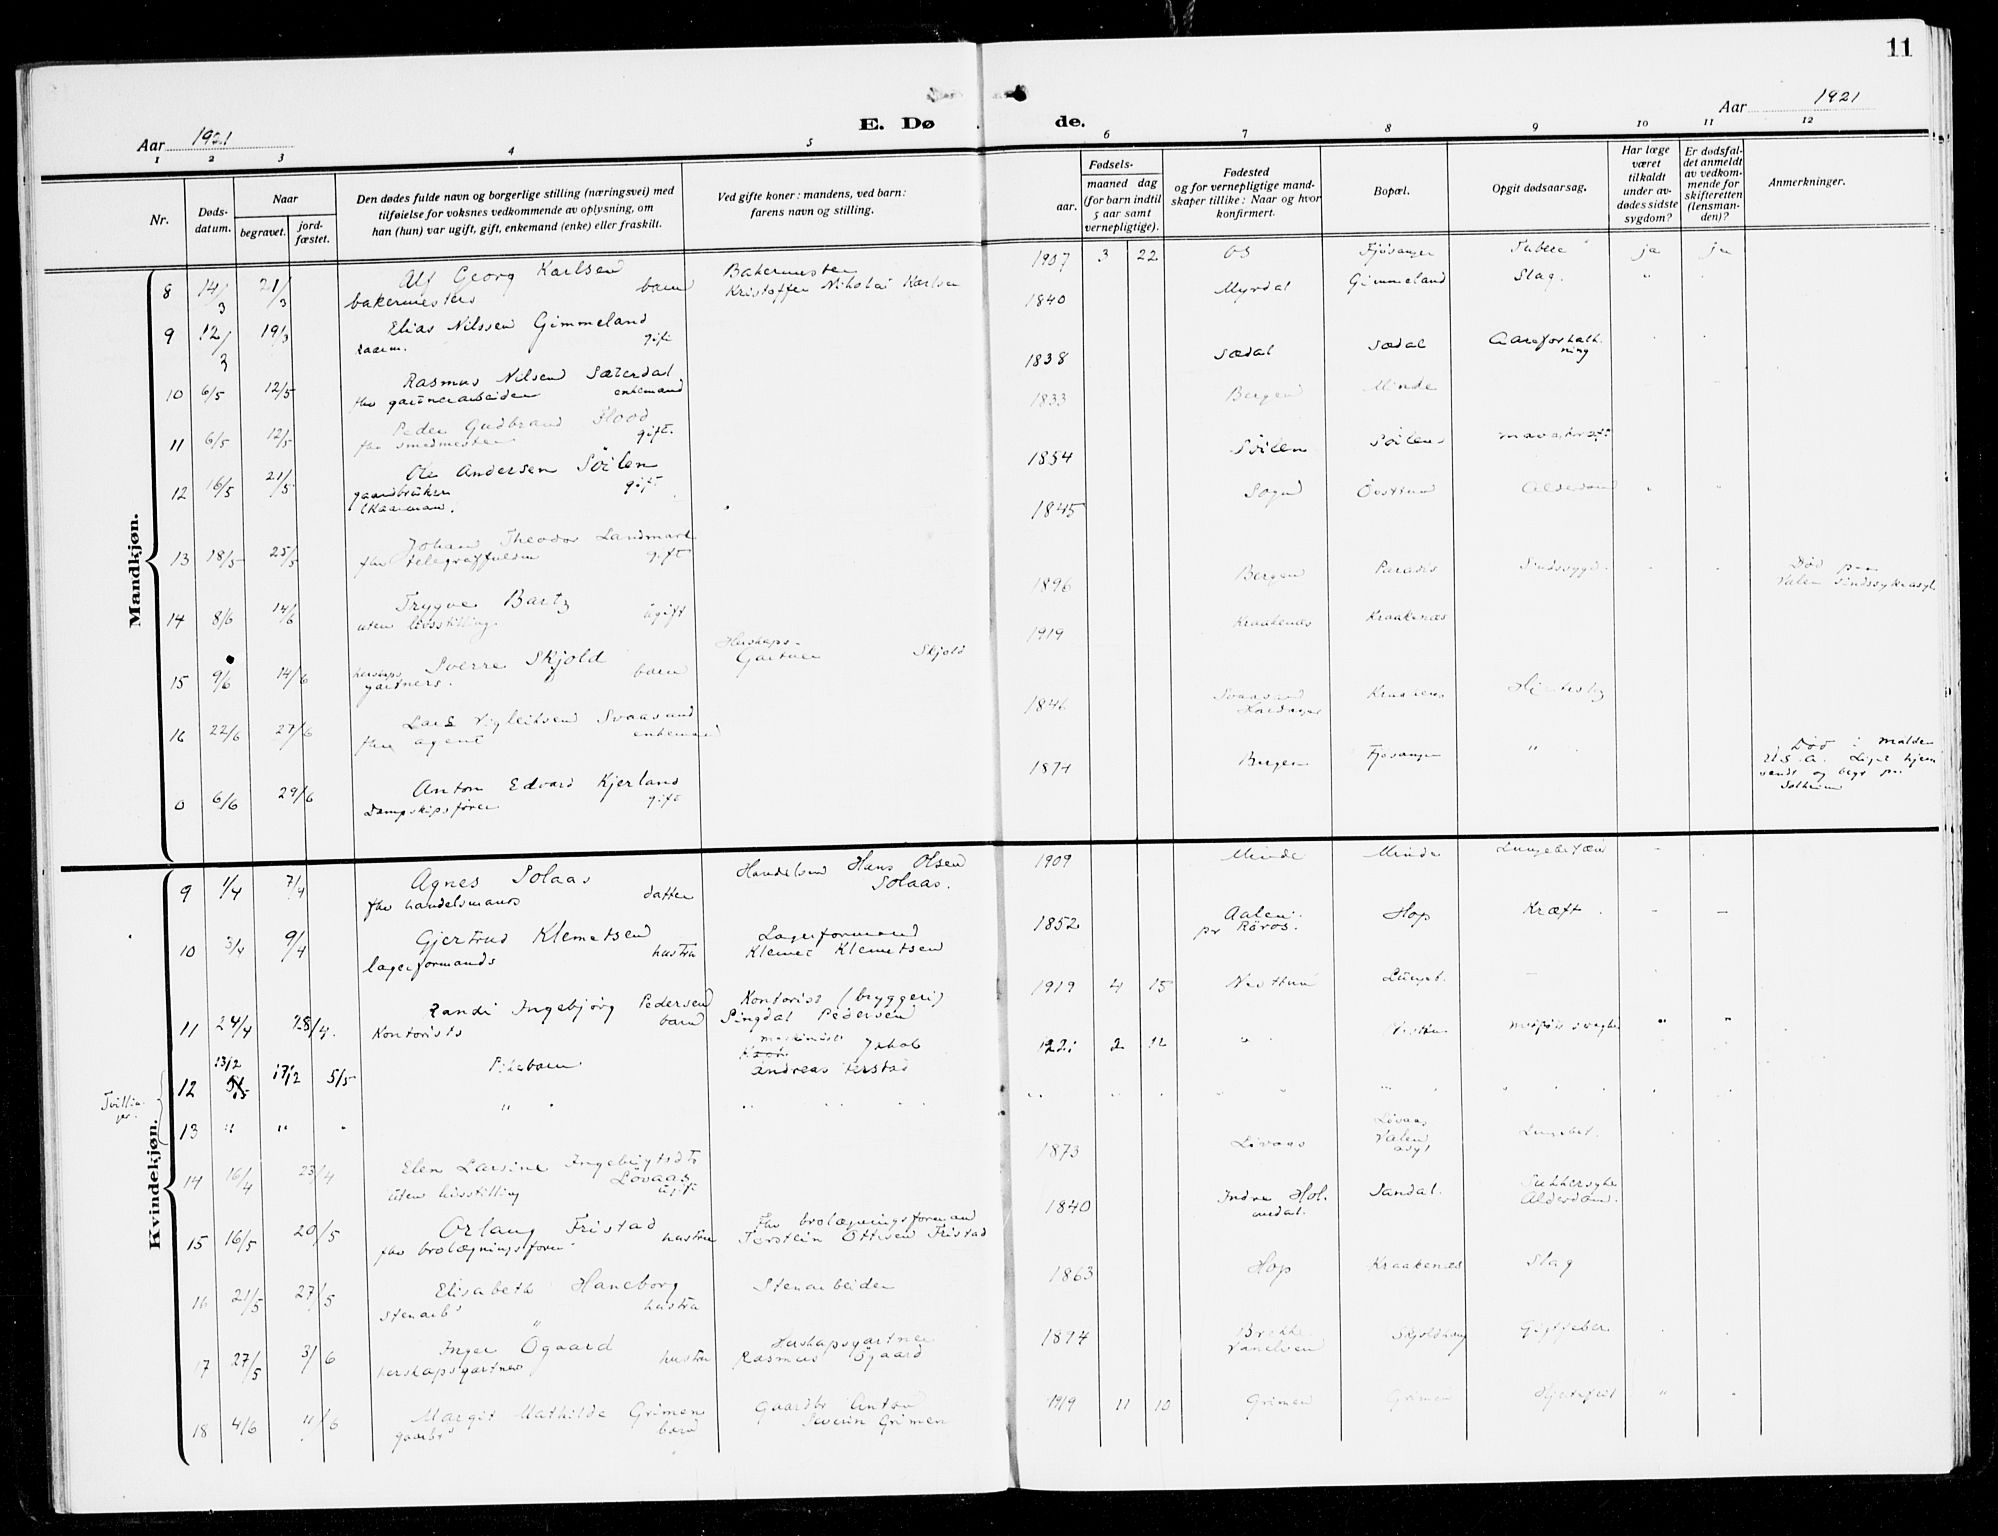 11
Aar 1921
E. Dø de.
Aar 1921
1 2 3 4 5 6 7 8 9 10 11 12
Nr.
Døds-
datum.
Naar
begravet.
jord-
fæstet.
Den dødes fulde navn og borgerlige stilling (næringsvei) med
tilføielse for voksnes vedkommende av oplysning, om
han (hun) var ugift, gift, enkemand (enke) eller fraskilt.
Ved gifte koner: mandens, ved barn:
farens navn og stilling.
Fødsels-
aar.
maaned dag
(for barn indtil
5 aar samt
vernepligtige).
Fødested
og for vernepligtige mand-
skaper tillike: Naar og hvor
konfirmert.
Bopæl.
Opgit dødsaarsag.
Har læge
været
tilkaldt
under av-
dødes sidste
sygdom?
Er dødsfal-
det anmeldt
av vedkom-
mende for
skifteretten
(lensman-
den)?
Anmerkninger.
Mandkjøn.
8 14/3 21/3 Alf Georg Karlsen
bakermesters barn
Bakermester
Kristoffer Nikolai Karlsen
1907 3 22 OS Fjøsanger ja ja
9 12/3 19/3 Elias Nilssen Gimmeland
kaarm. gift
1840 Myrdal Gimmeland Slag. "
10 6/5 12/5 Rasmus Nilsen Sæterdal
fhv gartnerarbeider enkemand
1838 Sædal Sædal Aareforkalk-
ning
11 6/5 12/5 Peder Gudbrand Flood
fhv smedmester gift.
1833 Bergen Minde
12 16/5 21/5 Ole Andersen Söilen
gaardbruker gift
(Kaarmann.
1854 Söilen Söilen mavekræft
13 18/5 25/5 Johan Theodor Landmark
fhv telegraffuldm gift
1845 Sogn Alderdom
14 8/6 14/6 Trygve Bartz
uten livsstilling. ugift
1896 Bergen Paradis Sindssygd.
Död paa
Valen Sindssykeasyl
15 9/6 14/6 Sverre Skjold
herskaps
gartners. barn
Herskaps-
Gartner Skjold
1919 Kraakenæs Kraakenæs
16 22/6 27/6 Lars Vigleiksen Svaasand
fhv agent enkemand
1846 Svaasand
Hardanger
0 6/6 29/6 Anton Edvard Kjerland
Dampskipsfører gift
1874 Bergen Fjøsanger "
Död i Malden
U.S.A. Liget hjem
sendt og begr paa
Solheim
Kvindekjøn.
9 1/4 7/4 Agnes Solaas
fhv handelsmands datter
Handelsmd Hans Olsen
Solaas.
1909 Minde Minde
10 3/4 9/4 Gjertrud Klemetsen
lagerformands hustru
Lagerformand
Klemet Klemetsen
1852 Aalen
pr Röros. Hop Kræft
11 24/4 28/4. Randi Ingebjörg Pedersen
Kontorists barn
Kontorist (bryggeri)
Singdal Pedersen
1919 4 15 Nesttun Lungebet.
Tvillin-
ger.
12 13/2 17/2 5/5 Pikebarn
Jakob
Andreas Ferstad
" "
13 " " "
14 16/4 23/4 Elen Larsine Ingebrigtsdtr
Lövaas
uten livsstilling ugift
1873 Lövaas Lövaas
Valen
asyl Lungebet.
15 16/5 20/5 Orlaug Fristad
fhv brolægningsform hustru
Fhv brolægningsformand
Torstein Ottesen Fristad
1840 Indre Hol-
medal. Sandal. Sukkersyke
Alderdom.
16 21/5 27/5 Elisabeth Haneborg
stenarbs hustru
Stenarbeider
1863 Hop Kraakenæs Slag
17 27/5 3/6 Inger Ögaard
herskapsgartner hustru
Herskapsgartner
Rasmus Ögaard
1874 Brekke
Gigtfeber
18 4/6 11/6 Margit Mathilde Grimen
gaardbr barn
Gaardbr Anton
Severin Grimen
1919 11 10 Grimen Grimen Hjertefeil "